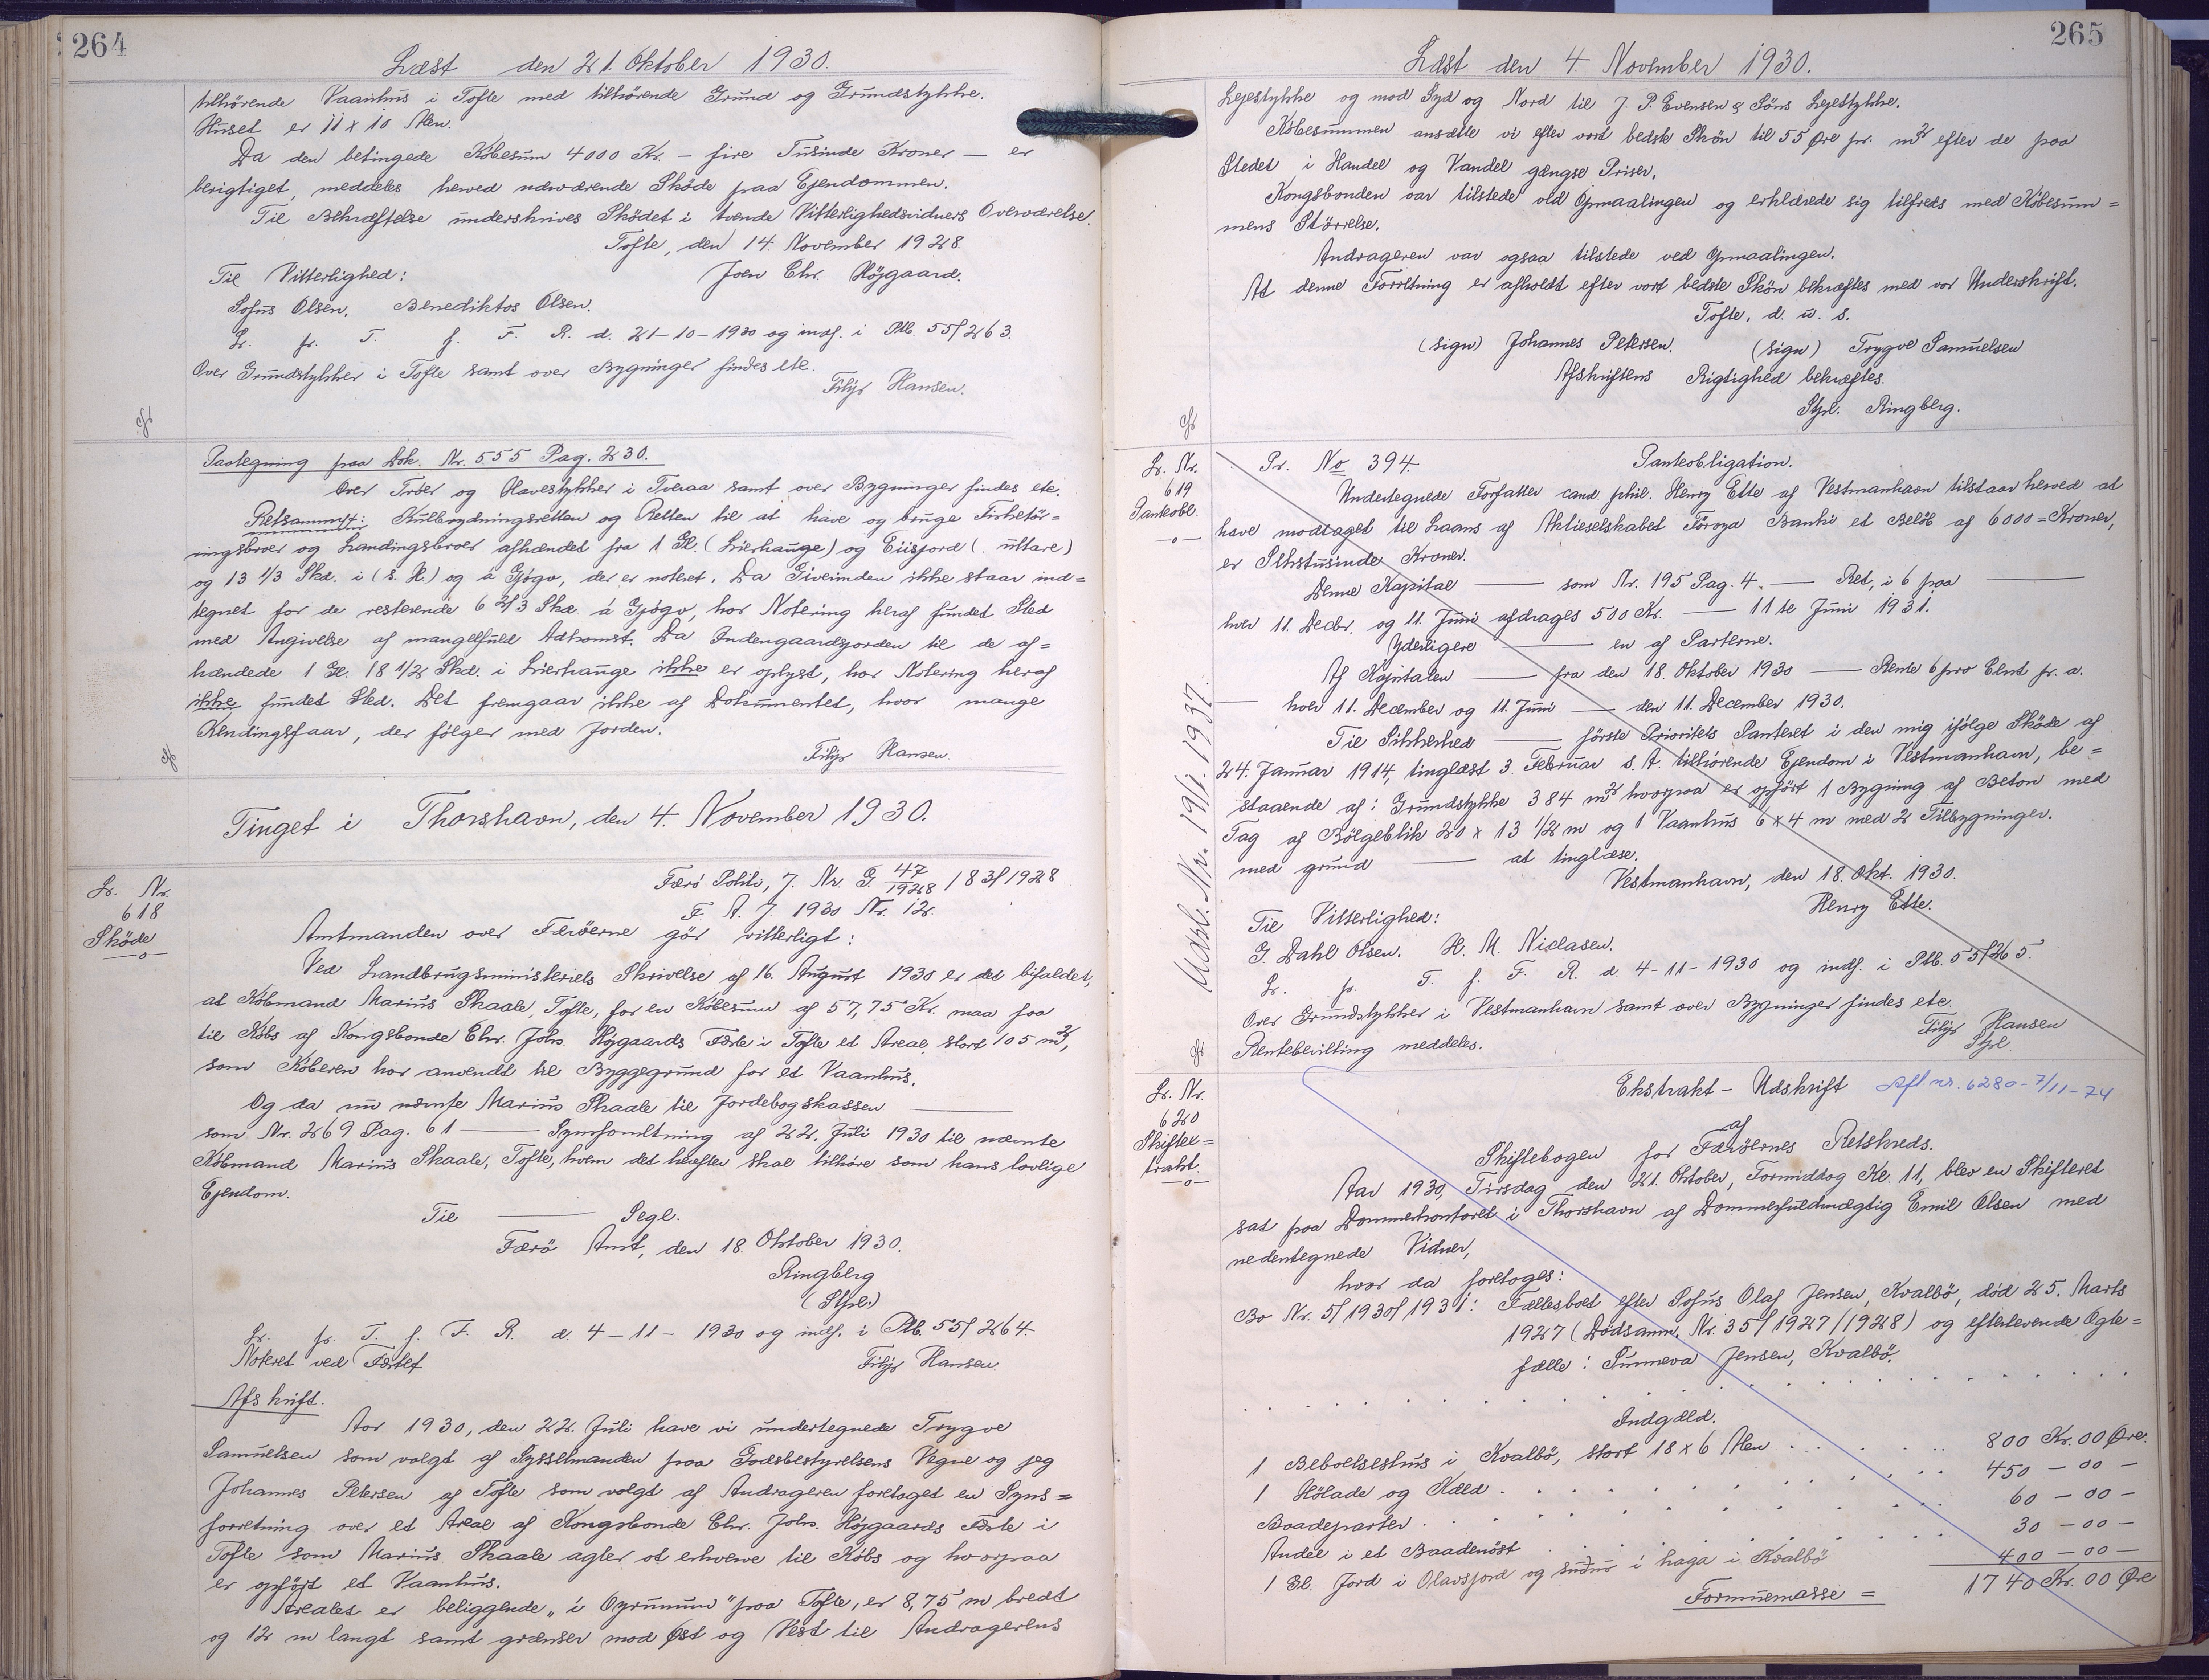 264
Læst den 21. Oktober 1930.
tilhørende Vaanhus i Tofte med tilhørende Grund og Grundstykke.
Huset er 11 x 10 Alen.
Da den betingede Købesum 4000 Kr. – fire Tusinde Kroner – er
berigtiget, meddeles herved nærværende Skøde paa Ejendommen.
Til Bekræftelse underskrives Skødet i tvende Vitterlighedsvidners Overværelse.
Tofte, den 14. November 1928.
Til Vitterlighed: Joen Chr. Højgaard.
Sofus Olsen. Benediktos Olsen.
L. pr. T. f. F. R. d. 21-10-1930 og indf. i Ptb. 55/263.
Over Grundstykker i Tofte samt over Bygninger findes ete.
Filip Hansen.
Paategning paa Dok. Nr. 555 Pag. 230.
Over Trøer og Havestykker i Tveraa samt over Bygninger findes ete.
Retsanmst: Kulbrydningsretten og Retten til at have og bruge Fisketør=
ringsbroer og Landingsbroer afhændet fra 1 Gl. (Lierhauge) og Eiisjord (. ultare)
og 13 1/3 Skd. i (s. St.) og á Gjógv, der er noteret. Da Giverinden ikke staar ind=
tegnet for de resterende 6 2/3 Skd. á Gjógv, har Notering heraf fundet Sted
med Angivelse af mangelfuld Adkomst. Da Indengaardsjorden til de af=
hændede 1 Gl. 18 1/2 Skd. i Lierhauge ikke er oplyst, har Notering heraf
ikke fundet Sted. Det fremgaar ikke af Dokumentet, hvor mange
Kendingsfaar, der følger med Jorden.
Filip Hansen.
Tinget i Thorshavn, den 4. November 1930.
L. Nr.
618
Skøde
Færø Politi, J. Nr. G. 47/1928 / 83/1928
F. A. J. 1930 Nr. 12.
Amtmanden over Færøerne gør vitterligt:
Ved Landbrugsministeriets Skrivelse af 16. August 1930 er det bifaldet,
at Købmand Marius Skaale, Tofte, for en Købesum af 57,75 Kr. maa faa
til Købs af Kongsbonde Chr. Johs. Højgaards Fæste i Tofte et Areal, stort 105 m²,
som Køberen har anvendt til Byggegrund for et Vaanhus.
Og da nu nævnte Marius Skaale til Jordebogskassen ——
som Nr. 269 Pag. 61 —— Synsforretning af 22. Juli 1930 til nævnte
Købmand Marius Skaale, Tofte, hvem det herefter skal tilhøre som hans lovlige
Ejendom.
Til —— Segl.
Færø Amt, den 18. Oktober 1930.
Ringberg
(Stpl.)
L. pr. T. f. F. R. d. 4-11-1930 og indf. i Ptb. 55/264.
Noteret ved Fæstet Filip Hansen.
Afskrift.
Aar 1930, den 22. Juli have vi undertegnede Trygve
Samuelsen som valgt af Sysselmanden paa Godsbestyrelsens Vegne og jeg
Johannes Petersen af Tofte som valgt af Andrageren foretaget en Syns=
forretning over et Areal af Kongsbonde Chr. Johs. Højgaards Fæste i
Tofte som Marius Skaale agter at erhverve til Købs og hvorpaa
er opført et Vaanhus.
Arealet er beliggende „i Oyrunum" paa Tofte, er 8,75 m bredt
og 12 m langt samt grænser mod Øst og Vest til Andragerens
265
Læst den 4. November 1930.
Lejestykke og mod Syd og Nord til J. P. Evensen & Søns Lejestykke.
Købesummen ansætte vi efter vort bedste Skøn til 55 Øre pr. m² efter de paa
Stedet i Handel og Vandel gængse Priser.
Kongsbonden var tilstede ved Opmaalingen og erklærede sig tilfreds med Købesum=
mens Størrelse.
Andrageren var ogsaa tilstede ved Opmaalingen.
At denne Forretning er afholdt efter vort bedste Skøn bekræftes med vor Underskrift.
Tofte, d. u. s.
(sign) Johannes Petersen. (sign) Trygve Samuelsen
Afskriftens Rigtighed bekræftes.
Stpl. Ringberg.
L. Nr.
619
Panteobl.
Pr. No 394. Panteobligation.
Undertegnede Forfatter cand. phil. Henry Ette af Vestmanhavn tilstaar herved at
have modtaget til Laans af Aktieselskabet Føroya Banki et Beløb af 6000 = Kroner,
er Sekstusinde Kroner.
Denne Kapital —— som Nr. 195 Pag. 4. —— Ret, i 6 paa ——
hver 11. Decbr. og 11. Juni afdrages 500 Kr. —— 11te Juni 1931.
Yderligere —— en af Parterne.
Af Kapitalen —— fra den 18. Oktober 1930 —— Rente 6 pro Cent pr. a.
—— hver 11. December og 11. Juni —— den 11. December 1930.
Til Sikkerhed —— første Prioritets Panteret i den mig ifølge Skøde af
24. Januar 1914, tinglæst 3. Februar s. A. tilhørende Ejendom i Vestmanhavn, be=
staaende af: Grundstykke 384 m² hvorpaa er opført 1 Bygning af Beton med
Tag af Bølgeblik 20 x 13 1/2 m og 1 Vaanhus 6 x 4 m med 2 Tilbygninger.
med grund —— at tinglæse.
Vestmanhavn, den 18. Okt. 1930.
Henry Ette.
Til Vitterlighed:
G. Dahl Olsen. H. M. Niclasen.
L. pr. T. f. F. R. d. 4-11-1930 og indf. i Ptb. 55/265.
Over Grundstykker i Vestmanhavn samt over Bygninger findes ete.
Filip Hansen
Rentebevilling meddeles. Stpl
Udsl. Nr. 19/1. 1937.
L. Nr.
620
Skifteex=
trakt.
Ekstrakt - Udskrift Afl nr. 6280 - 7/11-74
af
Skiftebogen for Færøernes Retskreds.
Aar 1930, Tirsdag den 21. Oktober, Formiddag Kl. 11, blev en Skifteret
sat paa Dommerkontoret i Thorshavn af Dommerfuldmægtig Emil Olsen med
nedentegnede Vidner,
hvor da foretoges:
Bo Nr. 5/1930/1931: Fællesboet efter Sofus Olaf Jensen, Kvalbø, død 25. Marts
1927 (Dødsanm. Nr. 35/1927/1928) og efterlevende Ægte=
fælle: Sunneva Jensen, Kvalbø.
Indgæld.
1 Beboelseshus i Kvalbø, stort 18 x 6 Alen 800 Kr. 00 Øre.
1 Hølade og Kæld 450 – 00 –
Baadeparter 60 – 00 –
Andel i et Baadenøst 30 – 00 –
1 Gl. Jord i Olavsjord og suður i haga i Kvalbø 400 – 00 –
Formuemasse = 1740 Kr. 00 Øre